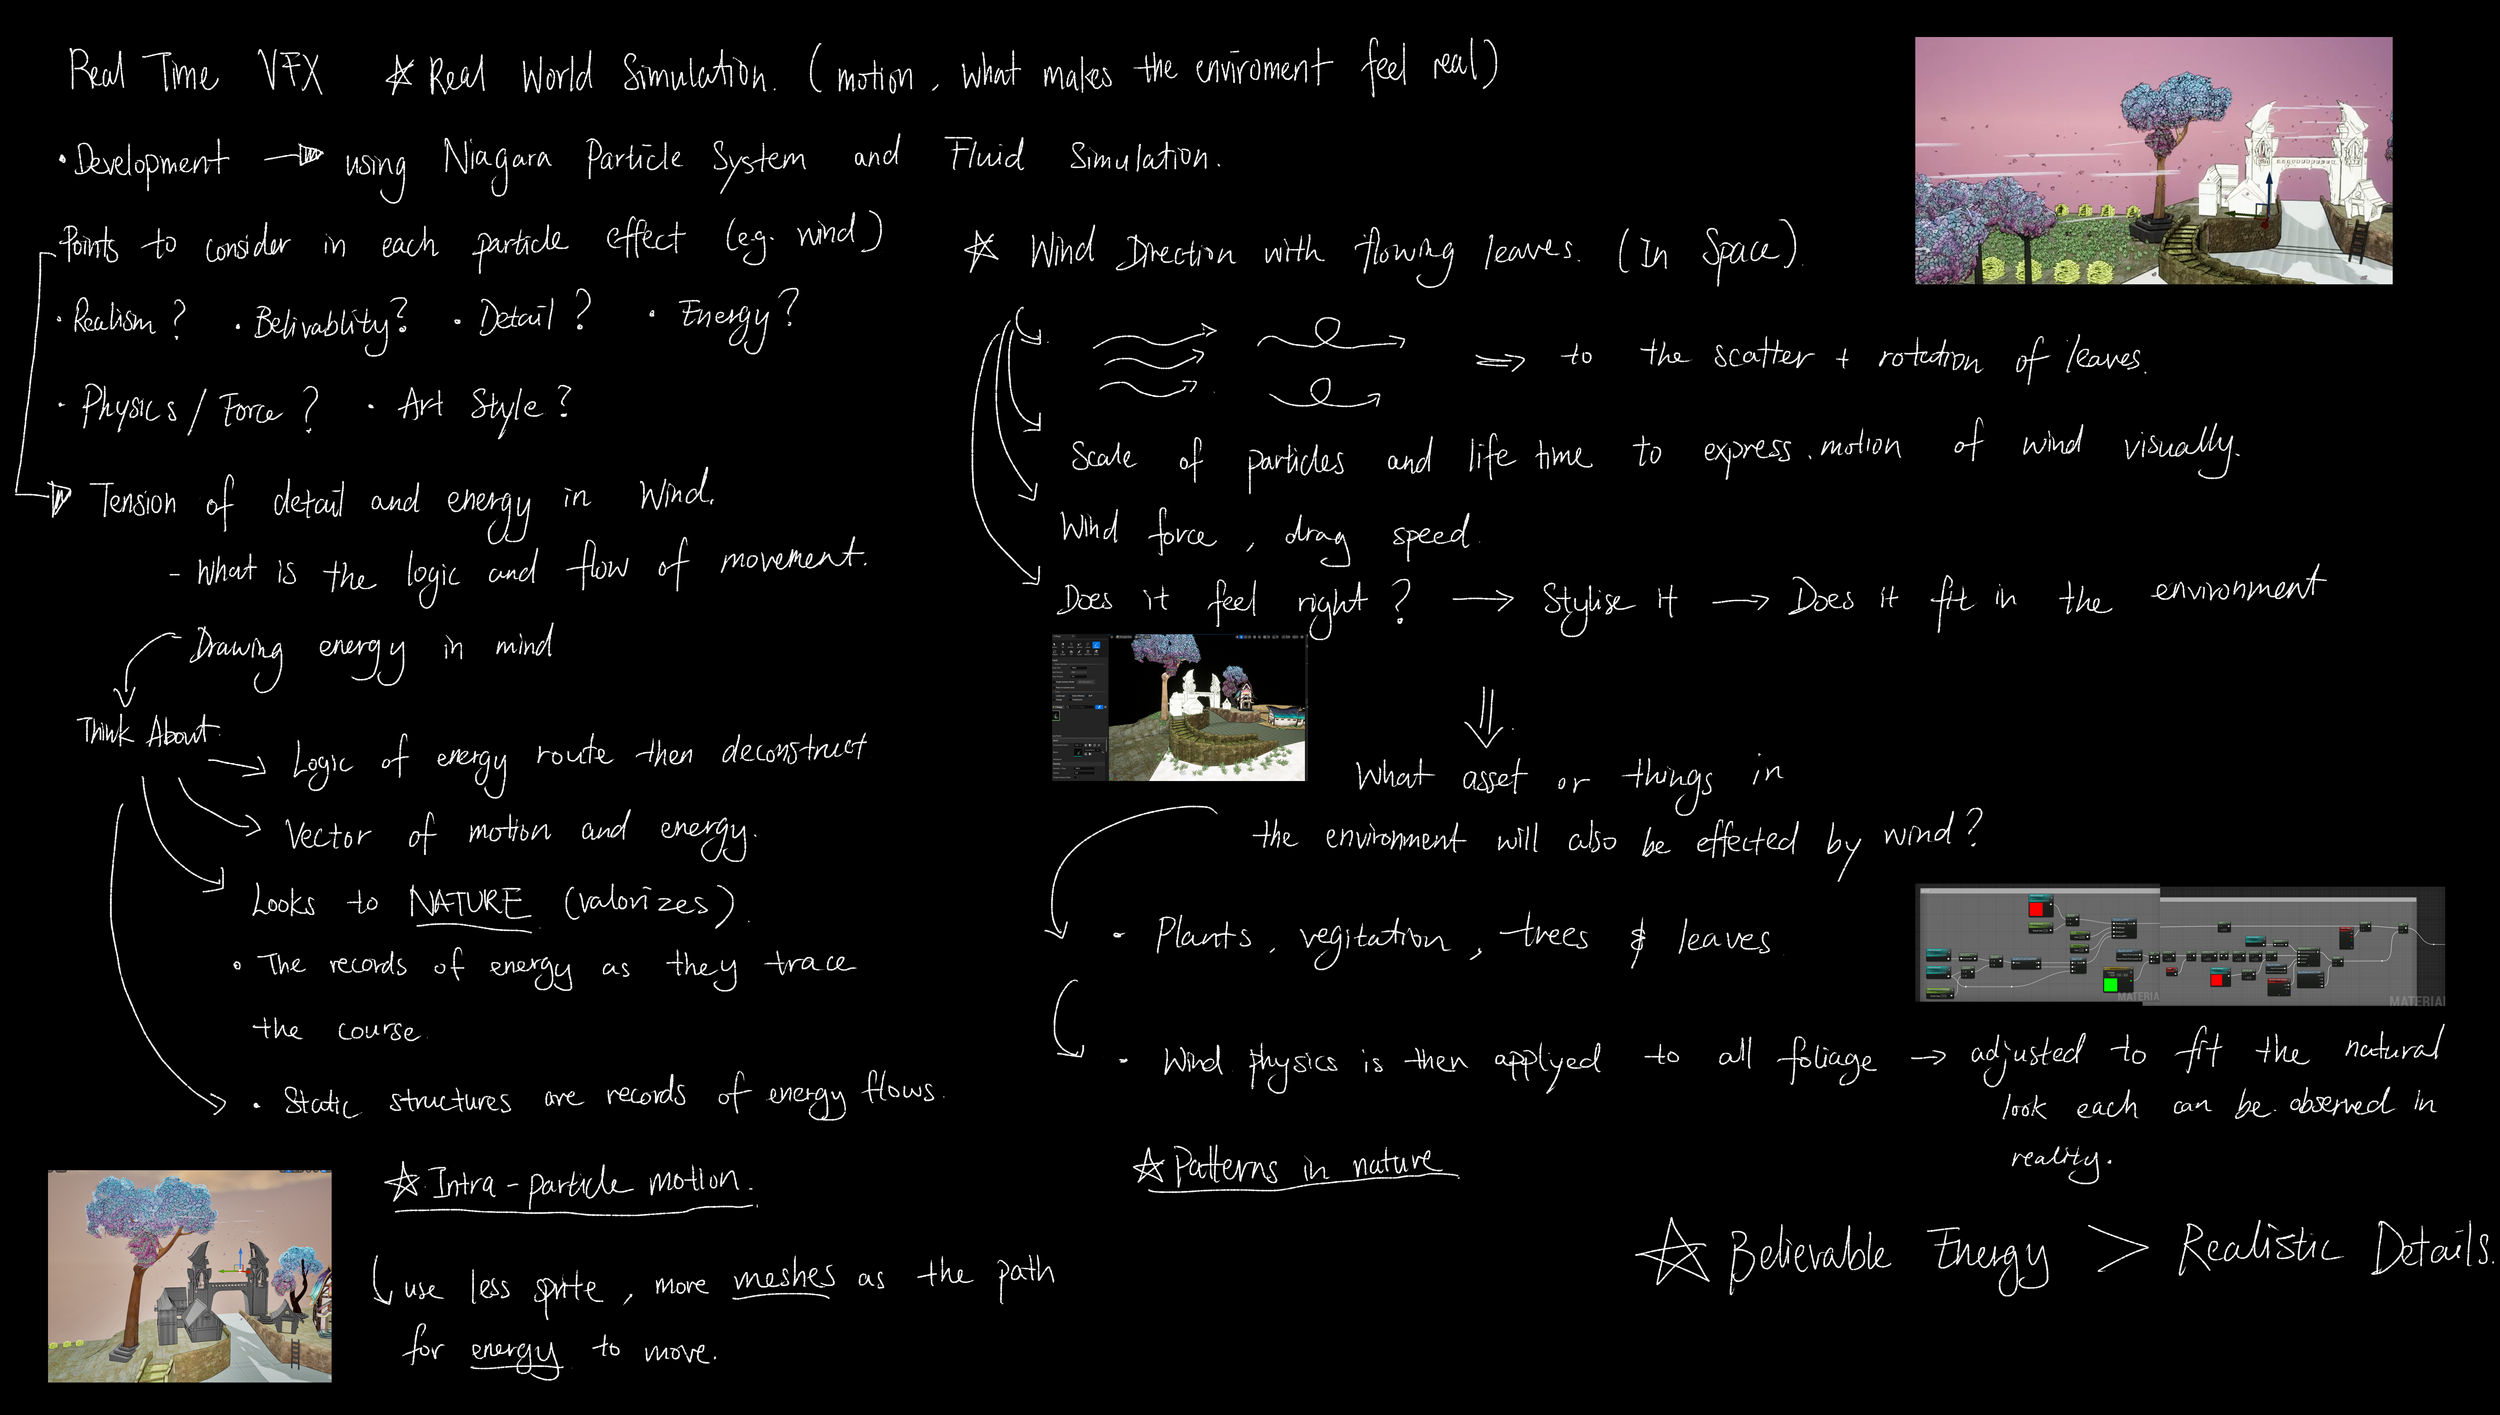 Real Time VFX ☆ Real World Simulation. (motion, what makes the enviroment feel real)
• Development → using Niagara Particle System and Fluid Simulation.
Points to consider in each particle effect (e.g. wind)
• Realism? • Belivablity? • Detail? • Energy?
• Physics / Force? • Art Style?
Tension of detail and energy in Wind.
- What is the logic and flow of movement.
- Drawing energy in mind
Think About
Logic of energy route then deconstruct
Vector of motion and energy.
Looks to NATURE (valorizes).
• The records of energy as they trace
the course.
• Static structures are records of energy flows.
☆ Intra-particle motion.
use less sprite, more meshes as the path
for energy to move.
☆ Wind Direction with flowing leaves. (In Space).
⇒ to the scatter + rotation of leaves.
Scale of particles and life time to express motion of wind visually.
Wind force, drag speed.
Does it feel right? → Stylise it → Does it fit in the environment
What asset or things in
the environment will also be effected by wind?
• Plants, vegitation, trees & leaves
• Wind physics is then applyed to all foliage → adjusted to fit the natural
look each can be observed in
reality.
☆ Patterns in nature
☆ Believable Energy > Realistic Details.
MATERIA
MATERIAL